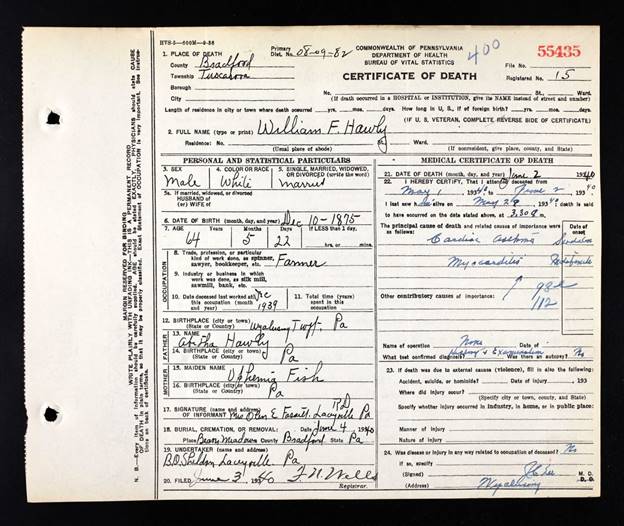 HVS-5-600M-9-38
Primary Dist. No. 08-09-82
COMMONWEALTH OF PENNSYLVANIA
DEPARTMENT OF HEALTH
BUREAU OF VITAL STATISTICS
CERTIFICATE OF DEATH
400
55435
File No.
Registered No. 15
1. PLACE OF DEATH
County Bradford
Township Tuscarora
Borough
City
No. St., Ward.
(If death occurred in a HOSPITAL or INSTITUTION, give its NAME instead of street and number)
Length of residence in city or town where death occurred yrs. mos. days. How long in U. S., if of foreign birth? yrs. mos. days.
(IF U. S. VETERAN, COMPLETE REVERSE SIDE OF CERTIFICATE)
2. FULL NAME (type or print) William F. Hawly
Residence: No. St., Ward.
(Usual place of abode) (If nonresident, give place, county, and State)
PERSONAL AND STATISTICAL PARTICULARS
3. SEX Male
4. COLOR OR RACE White
5. SINGLE, MARRIED, WIDOWED, OR DIVORCED (write the word)
5a. If married, widowed, or divorced
HUSBAND of
(or) WIFE of
6. DATE OF BIRTH (month, day, and year) Dec 10-1875
7. AGE Years Months Days If LESS than 1 day,
64 5 22 hrs. or mins.
OCCUPATION
8. Trade, profession, or particular kind of work done, as spinner, sawyer, bookkeeper, etc. Farmer
9. Industry or business in which work was done, as silk mill, sawmill, bank, etc.
10. Date deceased last worked at this occupation (month and year) Dec 1939
11. Total time (years) spent in this occupation
12. BIRTHPLACE (city or town) (State or Country) Wyalusing Twp. Pa
FATHER
13. NAME Hawly
14. BIRTHPLACE (city or town) (State or Country) Pa
MOTHER
15. MAIDEN NAME Fish
16. BIRTHPLACE (city or town) (State or Country) Pa
17. SIGNATURE (name and address) OF INFORMANT Mrs. E. Laceyville Pa RD
18. BURIAL, CREMATION, OR REMOVAL: Date June 4 1940
Place Meadows County Bradford State Pa
19. UNDERTAKER (address) B.O. Sheldon Laceyville Pa
20. FILED June 3, 1940 F. N. Wells
Registrar.
MEDICAL CERTIFICATE OF DEATH
21. DATE OF DEATH (month, day, and year) June 2 1940
22. I HEREBY CERTIFY, That I attended deceased from
May 1 1940 to June 2 1940
I last saw h alive on May 29 1940 death is said
to have occurred on the date stated above, at 3.30 P m.
The principal cause of death and related causes of importance were as follows:
Date of onset
Cardiac Asthma
Myocarditis
Other contributory causes of importance:
112
Name of operation None
What test confirmed diagnosis? History & Examination Was there an autopsy? No
23. If death was due to external causes (violence), fill in also the following:
Accident, suicide, or homicide? Date of injury 193
Where did injury occur?
(Specify city or town, county, and State)
Specify whether injury occurred in industry, in home, or in public place.
Manner of injury
Nature of injury
24. Was disease or injury in any way related to occupation of deceased? No
If so, specify
(Signed) M. D.
D. O.
(Address) Wyalusing
MARGIN RESERVED FOR BINDING